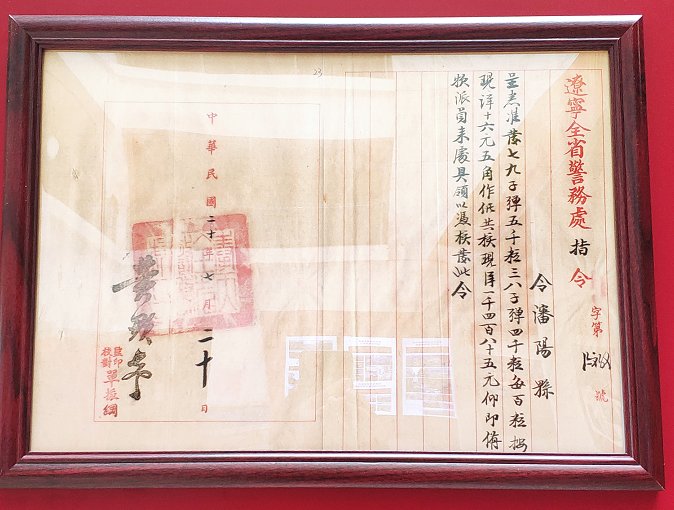 遼寧全省警務處指令
字第 號
令瀋陽縣
呈悉准發七九子彈五千粒三八子彈四千粒每百粒按
現洋十六元五角作価共核現洋一千四百八十五元仰即備
款派員來處具領以憑核發此令
中華民國二十年七月二十日
黃顯聲
監印
校對
單振綱
23